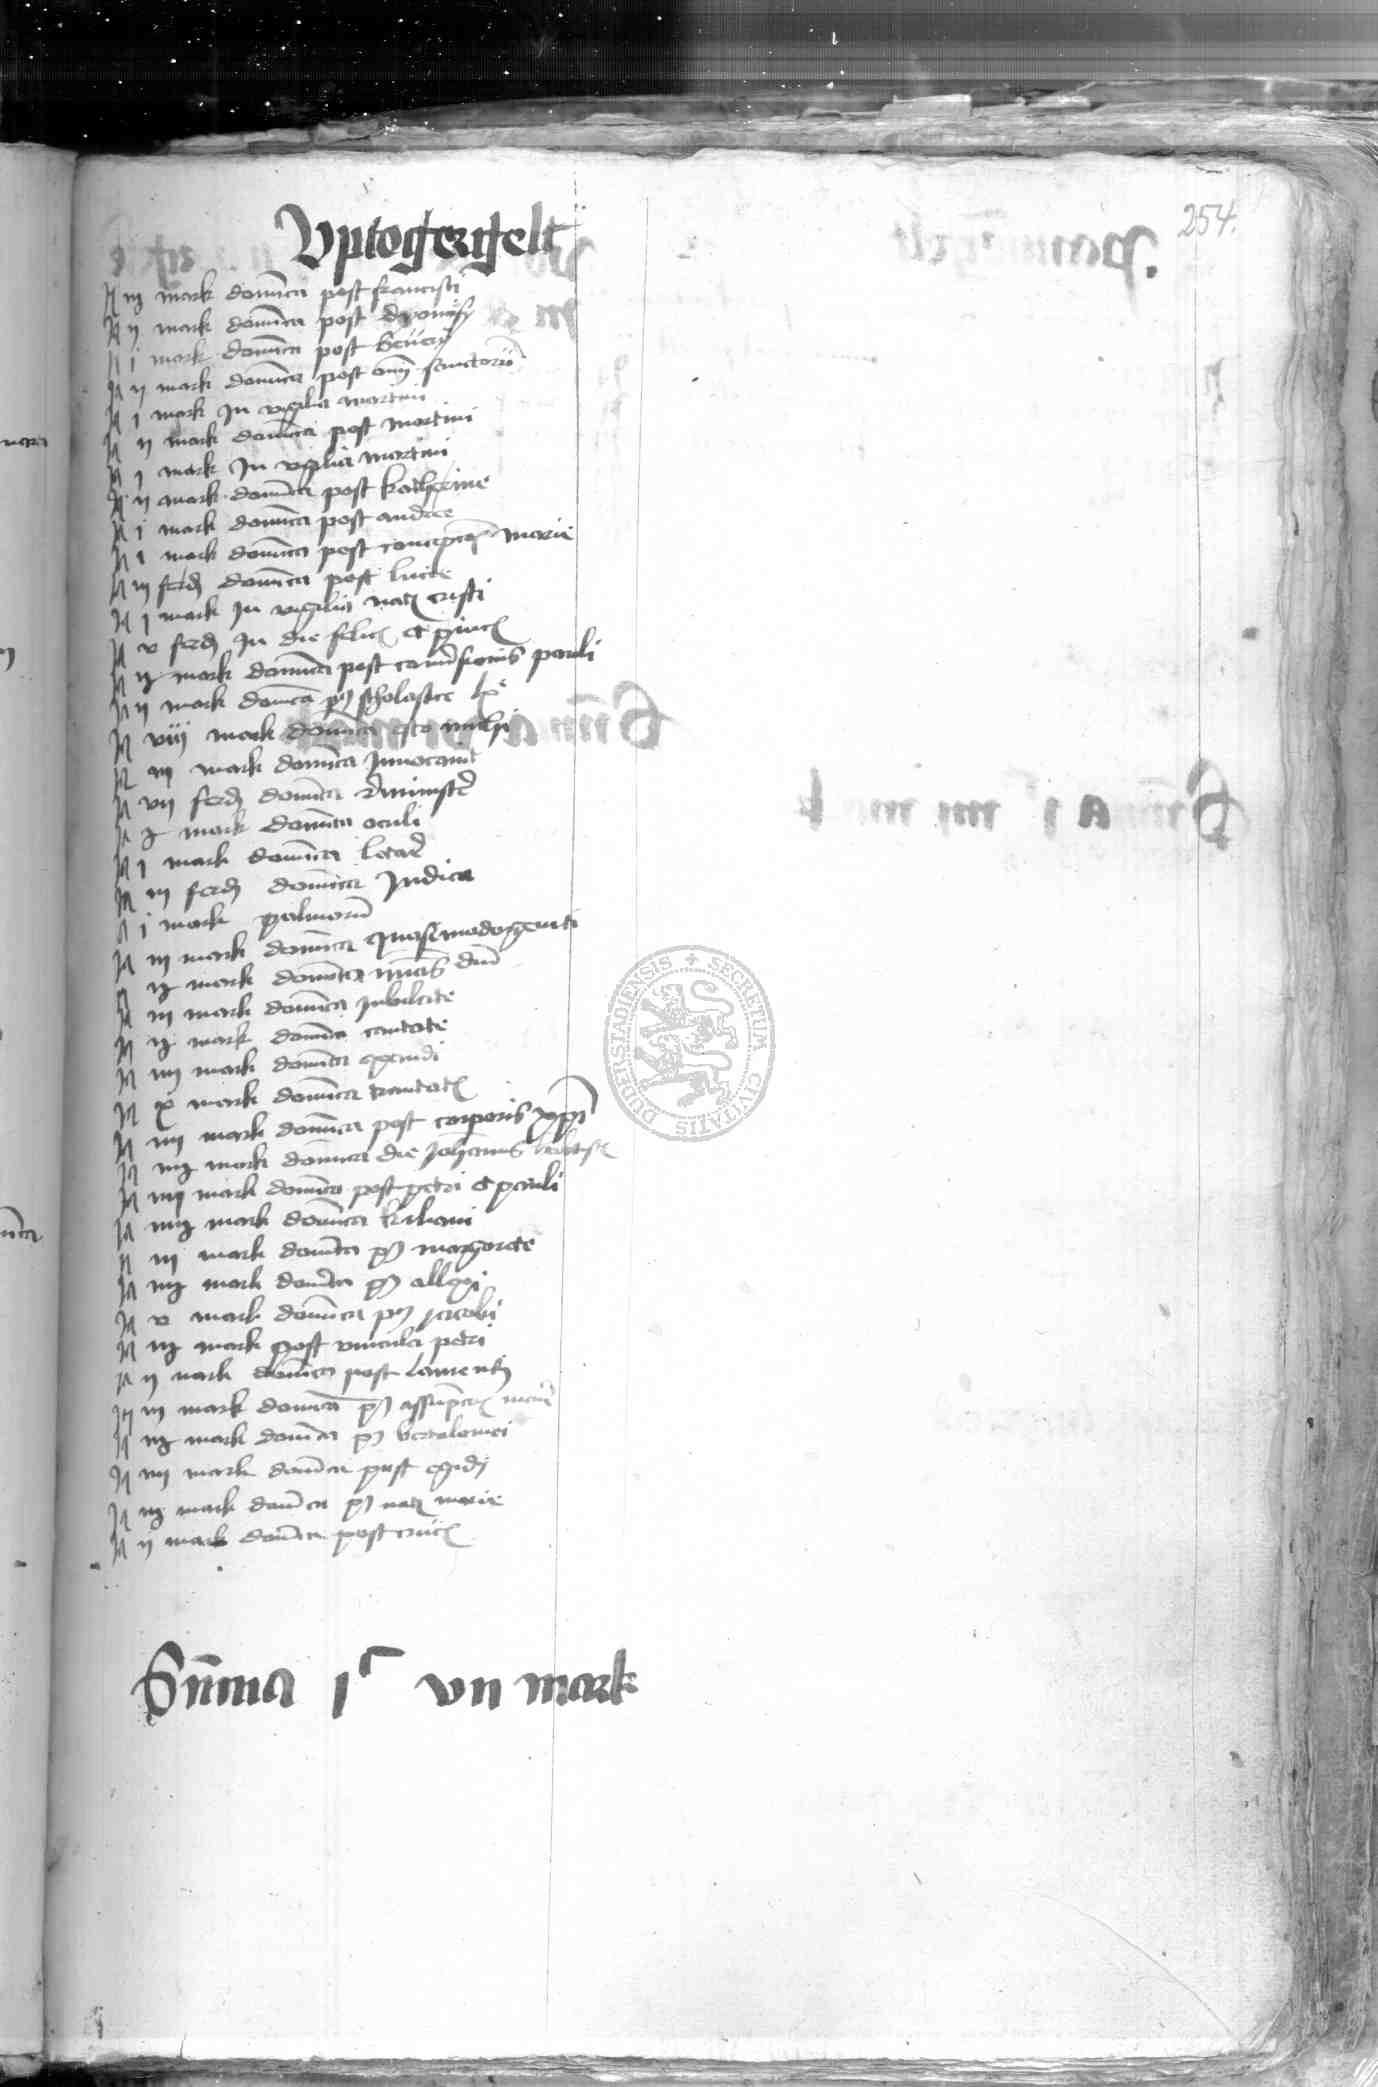 254.
Uptogergelt
It iij mark dominica post francisci
It ij mark dominica post dyonisij
It i mark dominica post Severi
It ij mark dominica post omnium sanctorum
It i mark In vigilia martini
It ij mark dominica post martini
It i mark In vigilia martini
It ij mark dominica post katherine
It i mark dominica post andree
It i mark dominica post concepcionis marie
It iij ferd dominica post lucie
It i mark In vigilia nat cristi
It v ferd In die felic et
It mark dominica post conversionis pauli
It ij mark dominica post scholastice
It viij mark dominica esto michi
It iij mark dominica Invocavit
It vij ferd dominica Reminiscere
It mark dominica oculi
It i mark dominica letare
It iij ferd dominica Judica
It i mark palmarum
It iij mark dominica Quasimodogeniti
It mark dominica mias dni
It iij mark dominica Jubilate
It mark dominica cantate
It iiij mark dominica exaudi
It x mark dominica trinitatis
It iiij mark dominica post corporis xpi
It mark dominica die Johannis
It iiij mark dominica post petri et pauli
It mark dominica kiliani
It iij mark dominica post margarete
It mark dominica post allexi
It v mark dominica post jacobi
It mark post vincula petri
It ij mark dominica post laurentij
It iij mark dominica post assumpcionis marie
It mark dominica post bartolomei
It iiij mark dominica post egidij
It mark dominica post nat marie
It ij mark dominica post crucis
Summa Ic vij mark
SECRETUM CIVITATIS DUDERSTADIENSIS